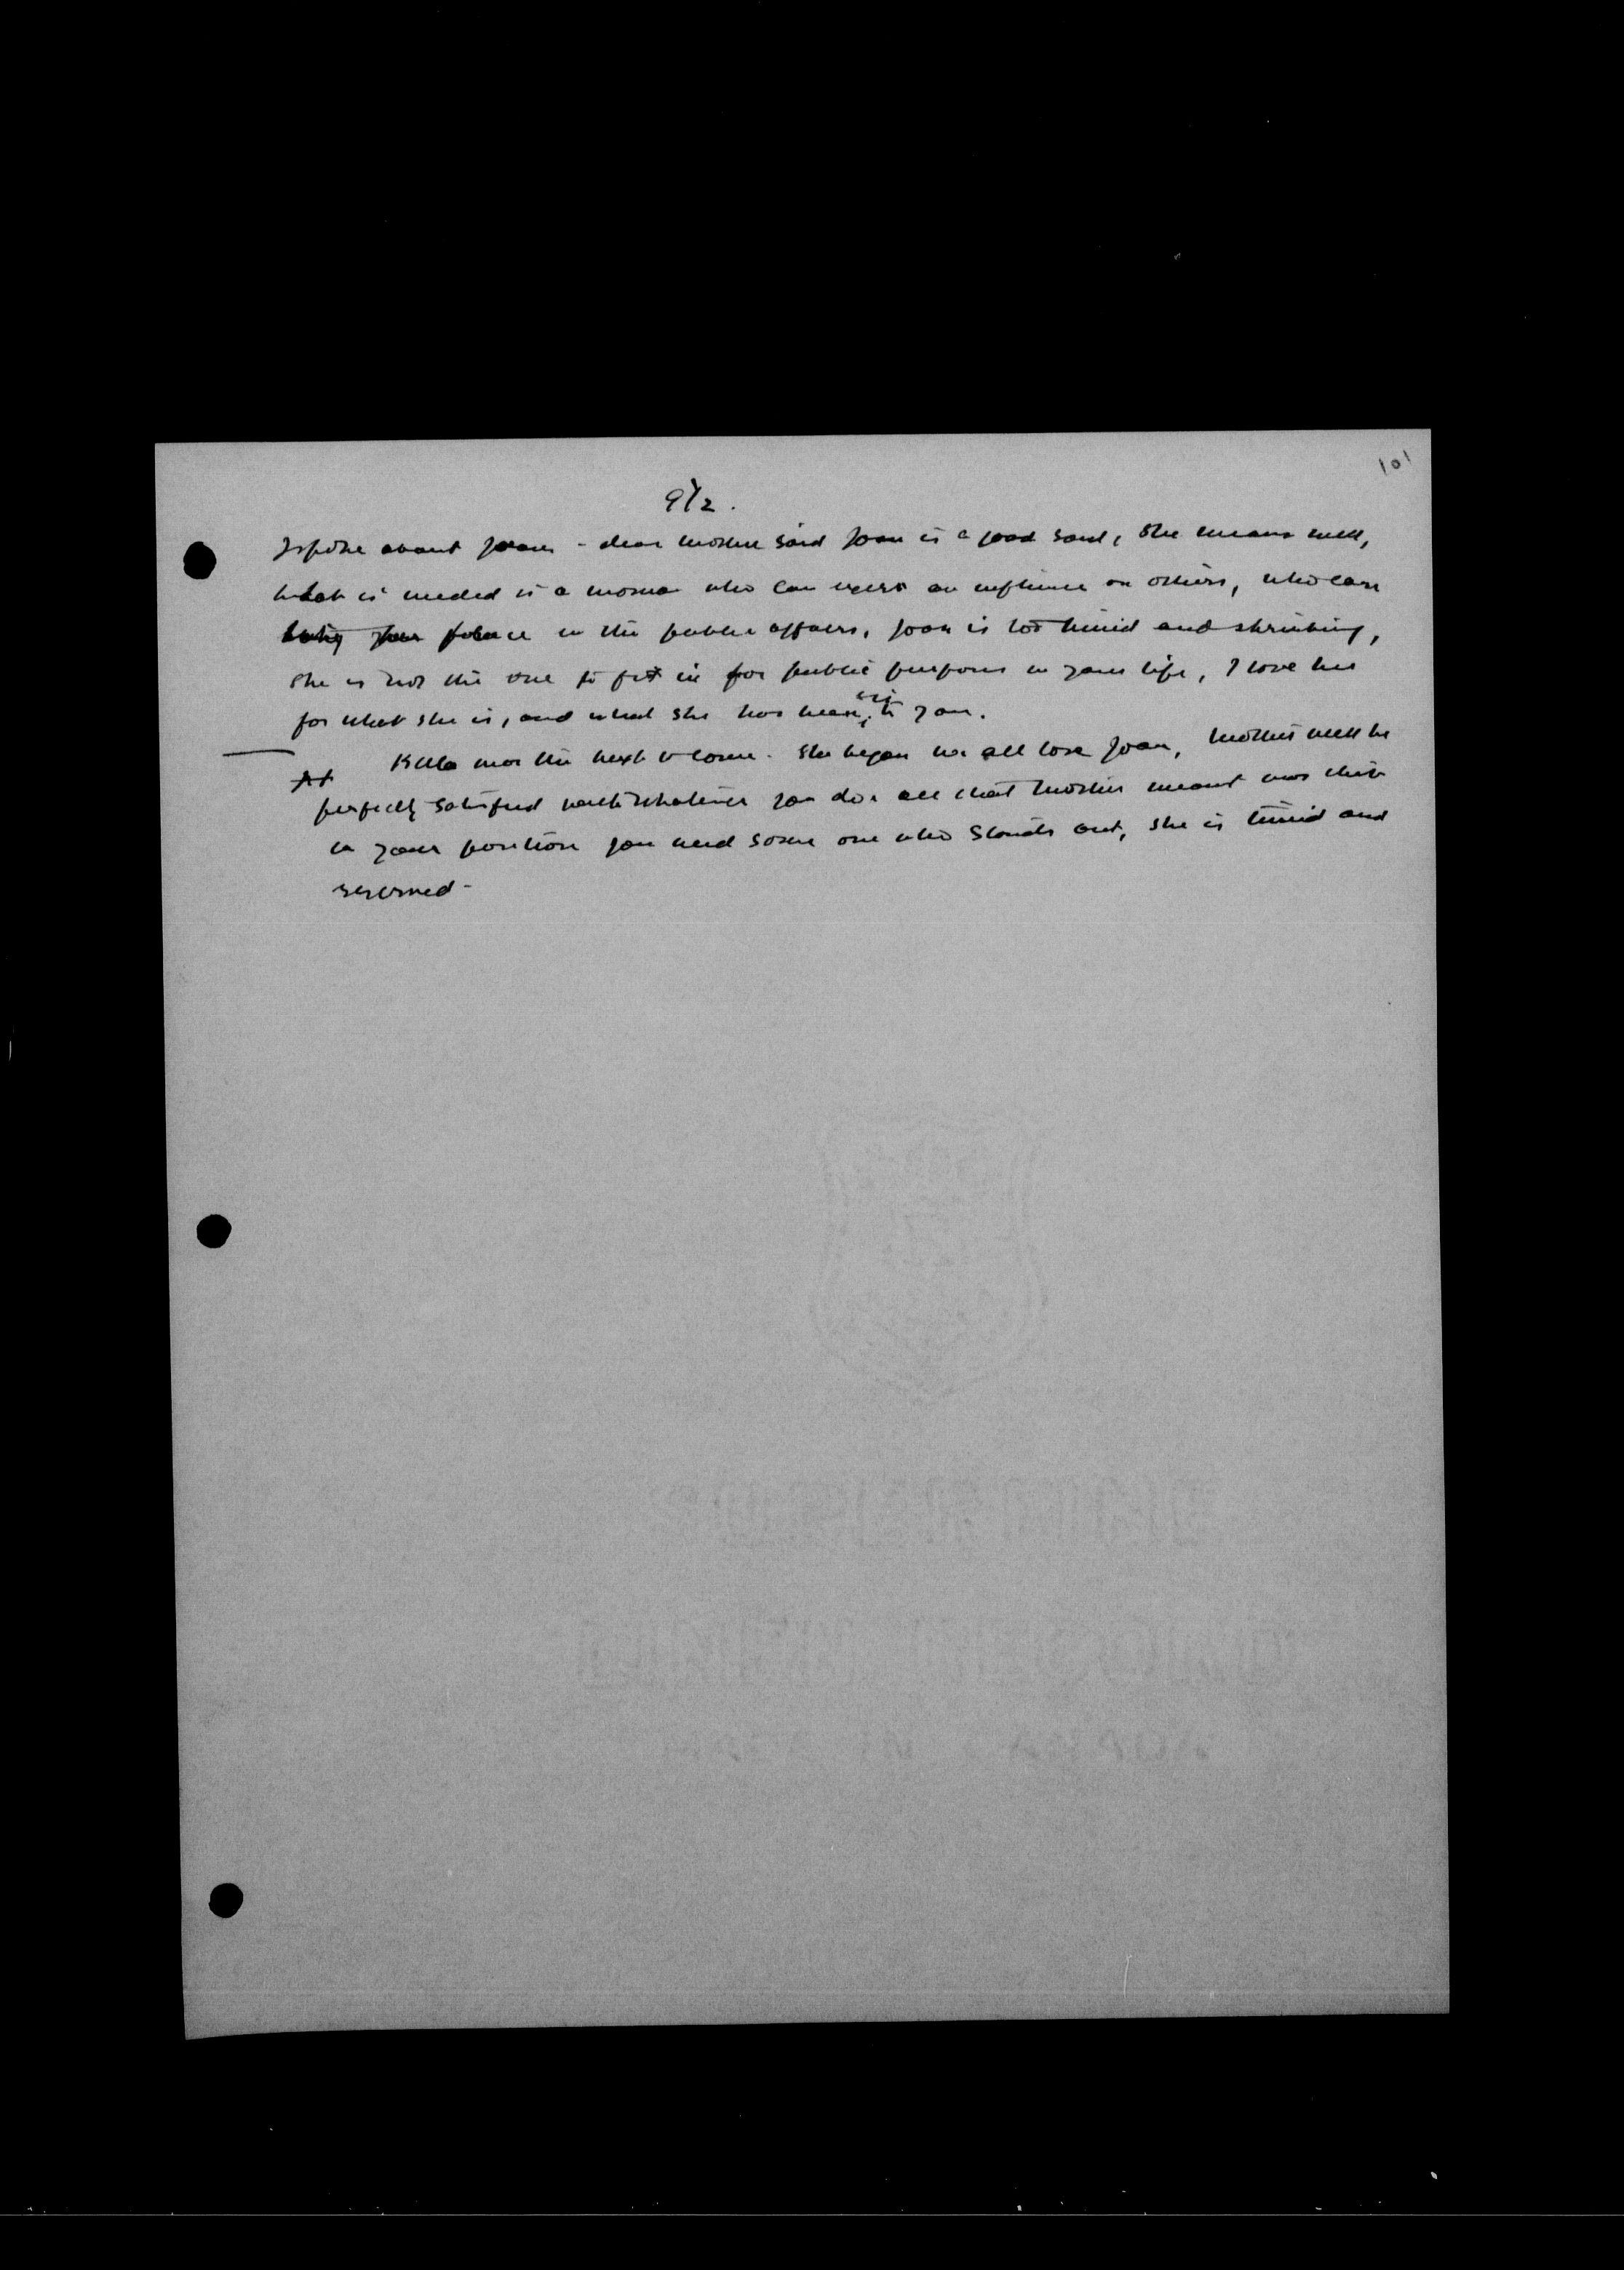 101
9/2.
I spoke about Joan - dear mother said Joan is a good soul, she means well,
what is needed is a woman who can exert an influence on others, who can
in the public affairs, Joan is too timid and shrinking,
she is not the one to fit in for public purposes in your life, I love her
for what she is, and what she has been to you.
was the next to come. She began we all love Joan, mother will be
perfectly satisfied with whatever you do, all that mother meant was that
in your position you need some one who stands out, she is timid and
reserved -